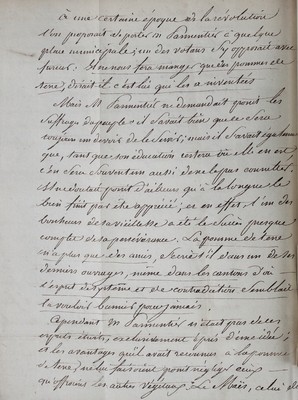 à une certaine époque de la révolution
l'on proposait de porter M Parmentier à quelque
place municipale; un des votans s'y opposait avec
fureur: Il ne nous fera manger que des pommes de
terre, disait-il c'est lui qui les a inventées
Mais M Parmentier ne demandait point les
suffrages du peuple il savait bien que le servir
toujours un devoir de le servir; mais il savait également
que, tant que son éducation restera ce qu'elle en est
c'en sera souvent aussi de ne le pas consulter.
Il ne doutait point d'ailleurs qu'à la longue le
bien finit par être apprécié; et en effet l'un des
bonheurs de sa vieillesse a été le succès presque
complet de sa persévérance. La pomme de terre
n'a plus que des amis, écrit-il dans un de ses
derniers ouvrages, même dans les cantons d'où
l'esprit de système et de contradiction semblait
la vouloir bannir pour jamais.
Cependant M Parmentier n'était pas de ces
esprits étroits, exclusivement épris d'une idée;
et les avantages qu'il avait reconnus à la pomme
de terre, ne lui faisoient point négliger ceux
qu'offroient les autres végétaux. Le Maïs, celui de